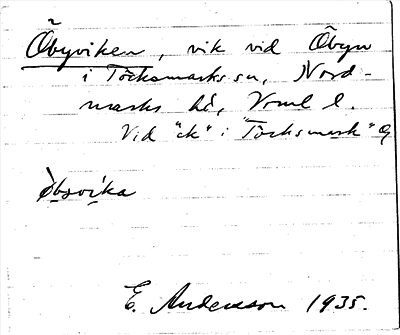 Öbyviken, vik vid Öbyn
i Töcksmarks sn, Nord-
marks hd, Vrml l.
Vid "ck" i "Töcksmark"
øbyvika
E. Andersson 1935.